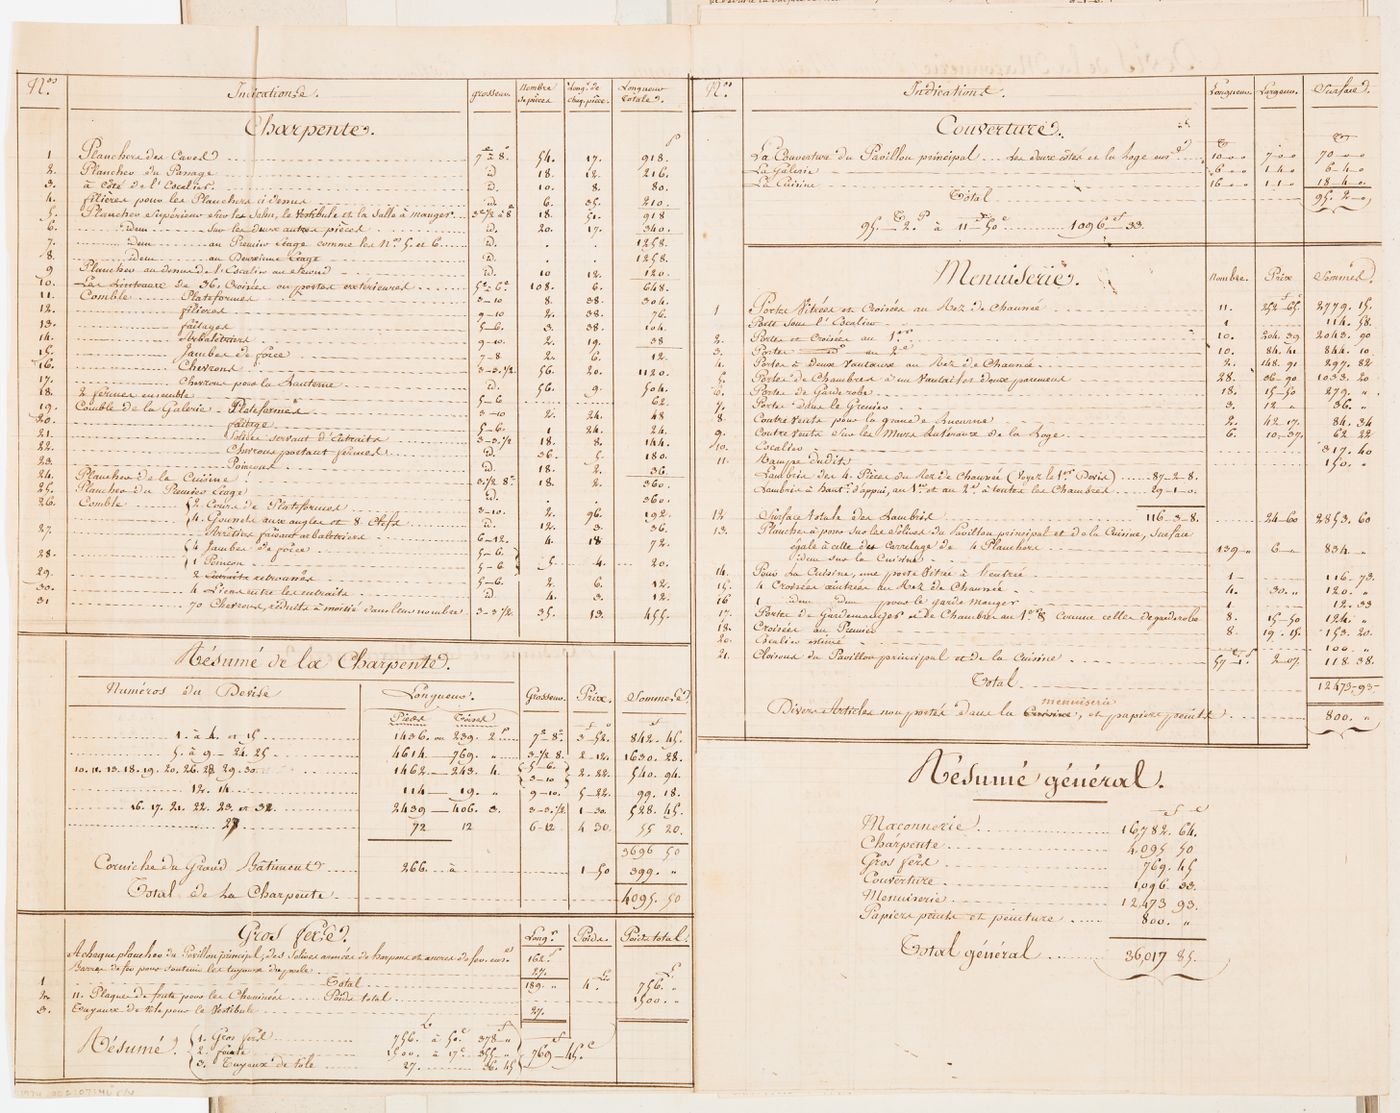 Nos. Indications. grosseur. Nombre de pièces. Longr. de chaq. pièce. Longueur Totale.
Charpente.
1 Planchers des Caves 7 à 8. 54. 17. 918.
2. Plancher du Passage id. 18. 12. 216.
3. à côté de l'Escalier. id. 10. 8. 80.
4. filières pour les Planchers ci dessus id. 6. 35. 210.
5. Plancher supérieur sur les Salns, le vestibule et la Salle à manger 3 1/2 à 8 18. 51. 918
6. idem sur les deux autres pièces id. 20. 17. 340.
7. idem au Premier Etage comme les Nos. 5 et 6. id. . . 1258.
8. idem au Deuxième Etage id. . . 1258.
9 Plancher au dessus de l'Escalier au second id. 10 12. 120.
10. Les Linteaux de 36. Croisées ou portes extérieures 5-6. 108. 6. 648.
11. Comble Plateformes 3-10 8. 38. 304.
12. filières 9-10. 2. 38. 76.
13. faîtages 5-6. 3. 38. 104.
14. Arbalêtriers 9-10. 2. 19. 38
15. Jambes de force 7-8 2. 6. 12.
16. Chevrons 3-3 1/2. 56. 20. 1120.
17. Chevrons pour la Lanterne id. 56. 9. 504.
18. 2 fermes ensemble 5-6 62.
19. Comble de la Galerie. Plateformes 3-10 2. 24. 48
20. faîtage 5-6. 1 24. 24.
21. Solives servant d'Entraits 3-3 1/2 18. 8. 144.
22. Chevrons portant fermes id. 36. 5. 180.
23. Poinçons id. 18. 2. 36.
24. Plancher de la Cuisine 3 1/2 8. 18. 2. 360.
25. Plancher du Premier Etage id. . 360.
26. Comble 2. Cours de Plateformes 3-10. 2. 96. 192.
4. Goussets aux angles et 8 Clefs id. 12. 3. 36.
27. Arêtiers faisant arbalêtriers 6-12. 4. 18 72.
28. 4 Jambes de force 5-6.
1 Poinçon 5-6 5. 4. 20.
29. 2 Entraits retroussés 5-6. 2. 6. 12.
30. 4 Liens entre les entraits 4. 3. 12.
31 70 Chevrons, réduits à moitié dans leur nombre 3-3 1/2. 35. 13. 455.
Résumé de la Charpente.
Numéros du Devis Longueur. Grosseur. Prix. Sommes.
Pièces Toises
1. à 4. et 15. 1436. ou 239. 2 7-8. 3-52. 842. 45.
5. à 9 - 24. 25 4614. - 769. " 3 1/2. 8. 2-12. 1630. 28.
10. 11. 13. 18. 19. 20. 26. 28 29. 30 1462 - 243. 4. 5-6. 3-10 2. 22. 540. 94.
12. 14. 114 - 19. " 9-10. 5-22. 99. 18.
16. 17. 21. 22. 23. et 32. 2439 - 406. 3. 3-3 1/2. 1-30. 528. 45.
27 72 12 6-12 4 30. 55 20.
3696 50
Corniche du Grand Bâtiment 266. à 1-50 399. "
Total de la Charpente 4095. 50
Gros fers. Longr. Poids. Poids total.
A chaque plancher du Pavillon principal, des Solives armées de harpons et ancres de fer 162.
Barres de fer pour soutenir les tuyaux du poële 27.
1 Total 189. " 4. 756. "
2. 11. Plaque de fonte pour les Cheminées. Poids total 1500. "
3. Tuyaux de tole pour le Vestibule 27.
Résumé. 1. Gros fers 756. à 50. 378 "
2. fonte 1500. à 17. 355 "
3. Tuyaux de tole 27. 36. 45
769 - 45.
Nos. Indications. Longueur. Largeur. Surface.
Couverture.
La Couverture du Pavillon principal. Les deux côtés et la Loge 10 " 7 " 70 "
La Galerie 6 " 1-4 " 6-4 "
La Cuisine 16 " 1-1 " 18-4 "
Total 95. 2 "
95. 2. à 11-50 1096 33.
Menuiserie. Nombre. Prix Sommes
1 Portes Vitrées et Croisées au Rez de Chaussée 11. 252-65. 2779. 15.
Porte sous l'Escalier 1 114. 58.
2. Portes et Croisées au 1er 10. 204. 39 2043. 90
3. Portes au 2e 10. 84. 41 844. 10
4. Portes à deux Vantaux au Rez de Chaussée 2. 148. 91 297. 82
5. Portes de Chambres à un Vantail et deux paremens 28. 36-90 1033. 20
6. Portes de Garderobe 18. 15-50 279. "
7. Portes dans le Grenier 3. 12 " 36. "
8. Contre Vents pour la grande Lucarne 2. 42. 17. 84. 34
9. Contre Vents sur les Murs latéraux de la Loge 6. 10-37 62 22
10. Escalier 317. 40
11. Rampe du dit 150. "
Lambris des 4. Pièces du Rez de Chaussée (Voyez le 1er Devis) 87-2-8.
Lambris à hautr. d'appui, au 1er et au 2e à toutes les Chambres 29-1-0.
12. Surface totale des Lambris 116-3-8. 24-60 2853. 60
13. Planches à poser sur les Solives du Pavillon principal et de la Cuisine, Surface
égale à celle des Carrelages de 4 Planchers
idem sur la Cuisine 139 " 6 - 834. "
14. Pour la Cuisine, une porte Vitrée à l'entrée 1 - 116-73.
15. 4 Croisées cintrées au Rez de Chaussée 4. 30. " 120. "
16 1 idem idem pour le garde manger 1. 12. 33
17. Portes de Gardemanges et de Chambres au 1er Comme celles de garderobe 8. 15-50 124. "
18. Croisées au Premier 8. 19. 15. 153. 20.
20. Escalier estimé 100. "
21. Cloisons du Pavillon principal et de la Cuisine 57-1. 2-07. 118 38.
Total 12473-93-
menuiserie
Divers Articles non portés dans la Cuisine, et papiers peints 800. "
Résumé général.
Maçonnerie 16,782. 64.
Charpente 4,095 50
Gros fers 769. 45
Couverture 1,096 33.
Menuiserie 12,473 93.
Papiers peints et peinture 800. "
Total général 36,017 85.